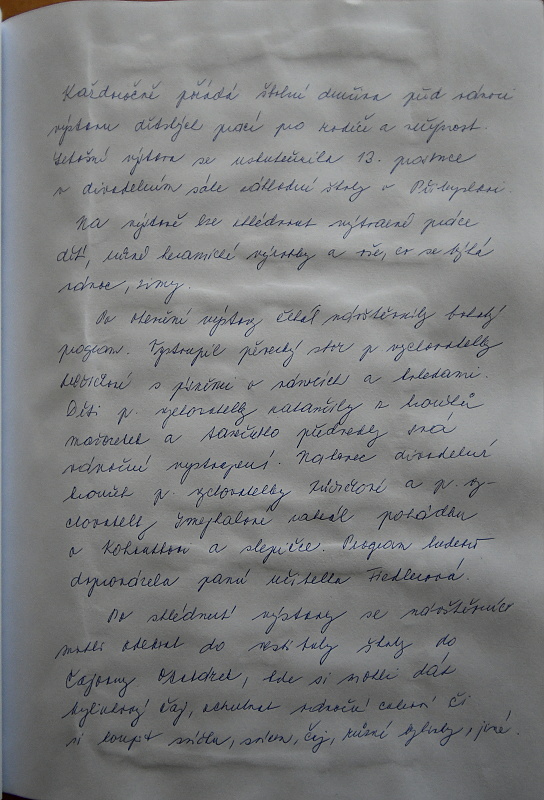 Každoročně pořádá školní družina před vánoci
výstavu dětských prací pro rodiče a veřejnost.
Letošní výstava se uskutečnila 13. prosince
v divadelním sále základní školy v Přibyslavi.
Na výstavě lze shlédnout výtvarné práce
dětí, různé keramické výrobky a vše, co se týká
vánoc, zimy.
Po otevření výstavy čekal návštěvníky bohatý
program. Vystoupil pěvecký sbor p. vychovatelky
s písněmi o vánocích a koledami.
Děti p. vychovatelky zatančily z kroužků
mažoretek a tanečního předvedly svá
vánoční vystoupení. Nakonec divadelní
kroužek p. vychovatelky a p. vy-
chovatelky Smejkalové zahrál pohádku
o Kohoutkovi a slepičce. Program hudebně
doprovázela paní učitelka Fiedlerová.
Po shlédnutí výstavy se návštěvníci
mohli odebrat do vestibulu školy do
čajovny, kde si mohli dát
bylinkový čaj, ochutnat vánoční cukroví či
si koupit svíčku, čaj, různé výrobky, jiné.